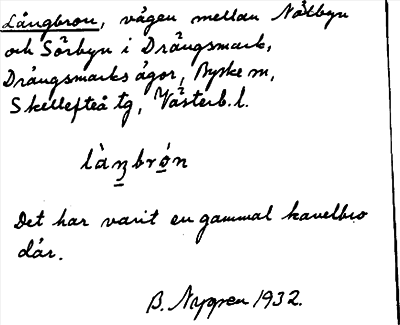 Långbron, vägen mellan Nôlbyn
och Sörbyn i Drängsmark,
Drängsmarks ägor, Byske sn,
Skellefteå tg, Västerb. l.
làŋbrón
Det har varit en gammal kavelbro
där.
B. Nygren 1932.